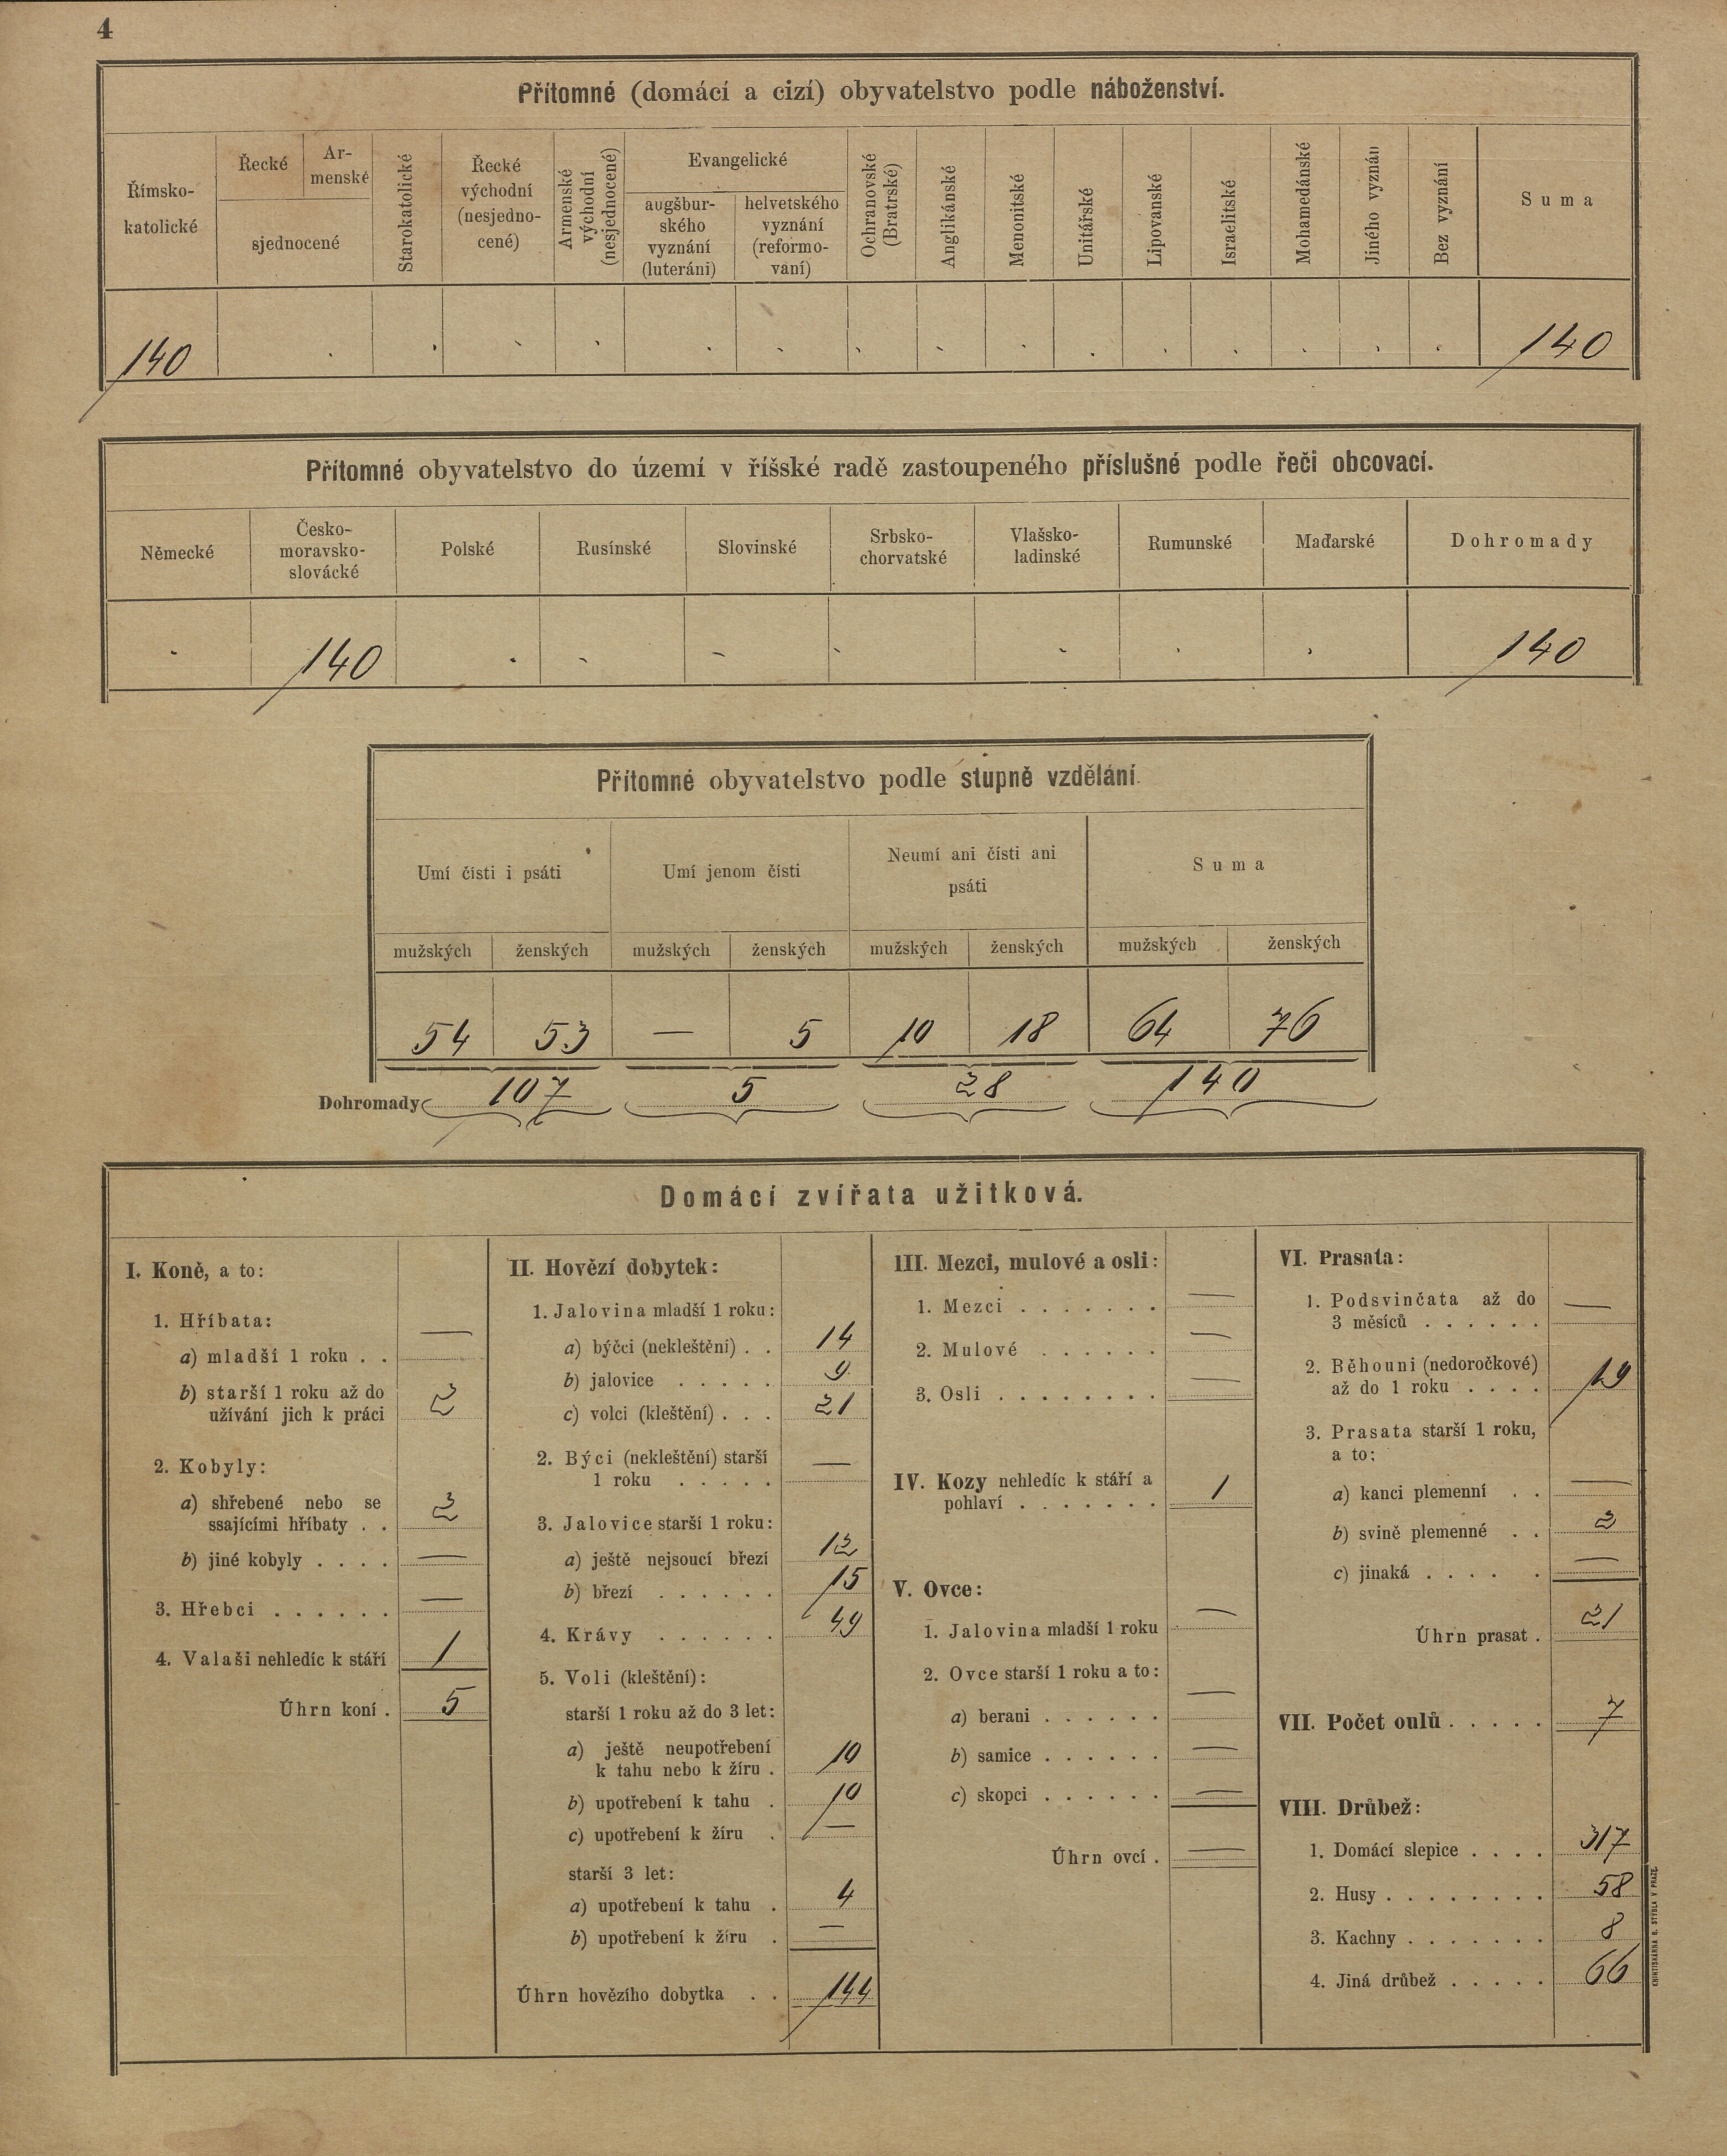 4
Přítomné (domácí a cizí) obyvatelstvo podle náboženství.
Římsko-
katolické
Řecké
Ar-
menské
sjednocené
Starokatolické
Řecké
východní
(nesjedno-
cené)
Armenské
východní
(nesjednocené)
Evangelické
augšbur-
ského
vyznání
(luteráni)
helvetského
vyznání
(reformo-
vaní)
Ochranovské
(Bratrské)
Anglikánské
Menonitské
Unitářské
Lipovanské
Israelitské
Mohamedánské
Jiného vyznán
Bez vyznání
Suma
140 . . . . . . . . . . . . . . . 140
Přítomné obyvatelstvo do území v říšské radě zastoupeného příslušné podle řeči obcovací.
Německé
Česko-
moravsko-
slovácké
Polské
Rusínské
Slovinské
Srbsko-
chorvatské
Vlašsko-
ladinské
Rumunské
Maďarské
Dohromady
. 140 . . . . . . . 140
Přítomné obyvatelstvo podle stupně vzdělání.
Umí čísti i psáti
Umí jenom čísti
Neumí ani čísti ani
psáti
Suma
mužských ženských mužských ženských mužských ženských mužských ženských
54 53 — 5 10 18 64 76
Dohromady 107 5 28 140
Domácí zvířata užitková.
I. Koně, a to:
1. Hříbata:
a) mladší 1 roku . . —
b) starší 1 roku až do
užívání jich k práci 2
2. Kobyly:
a) shřebené nebo se
ssajícími hříbaty . . 2
b) jiné kobyly . . . . —
3. Hřebci . . . . . . —
4. Valaši nehledíc k stáří 1
Úhrn koní . 5
II. Hovězí dobytek:
1. Jalovina mladší 1 roku:
a) býčci (nekleštění) . . 14
b) jalovice . . . . . 9
c) volci (kleštění) . . . 21
2. Býci (nekleštění) starší
1 roku . . . . . —
3. Jalovice starší 1 roku:
a) ještě nejsoucí březí 12
b) březí . . . . . . 15
4. Krávy . . . . . . 49
5. Voli (kleštění):
starší 1 roku až do 3 let:
a) ještě neupotřebení
k tahu nebo k žíru . 10
b) upotřebení k tahu . 10
c) upotřebení k žíru . —
starší 3 let:
a) upotřebení k tahu . 4
b) upotřebení k žíru . —
Úhrn hovězího dobytka . . 144
III. Mezci, mulové a osli:
1. Mezci . . . . . . . —
2. Mulové . . . . . . —
3. Osli . . . . . . . . —
IV. Kozy nehledíc k stáří a
pohlaví . . . . . . . 1
V. Ovce:
1. Jalovina mladší 1 roku —
2. Ovce starší 1 roku a to:
a) berani . . . . . . —
b) samice . . . . . . —
c) skopci . . . . . . —
Úhrn ovcí . —
VI. Prasata:
1. Podsvinčata až do
3 měsíců . . . . . . —
2. Běhouni (nedoročkové)
až do 1 roku . . . . 19
3. Prasata starší 1 roku,
a to:
a) kanci plemenní . . —
b) svině plemenné . . 2
c) jinaká . . . . . —
Úhrn prasat . 21
VII. Počet oulů . . . . . 7
VIII. Drůbež:
1. Domácí slepice . . . . 317
2. Husy . . . . . . . . 58
3. Kachny . . . . . . . 8
4. Jiná drůbež . . . . . 66